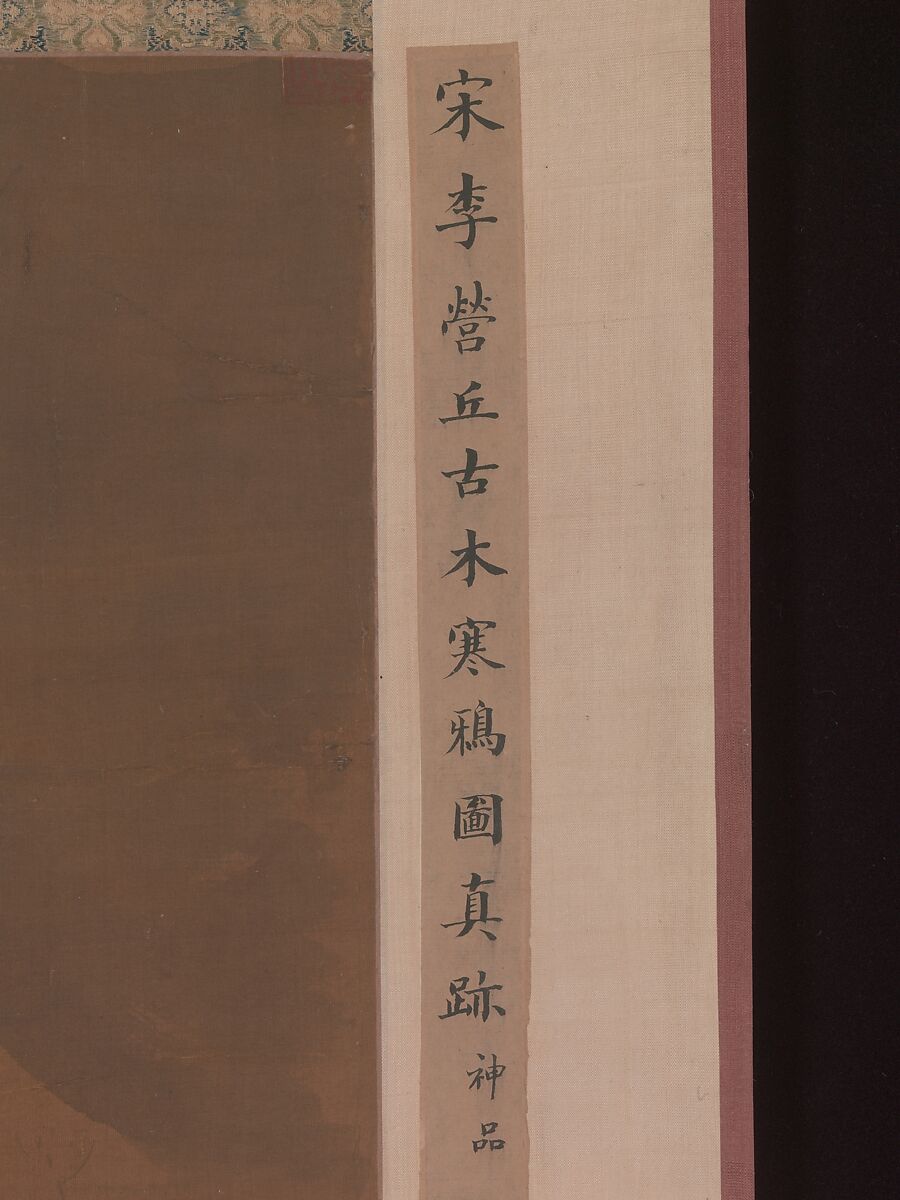 宋李營丘古木寒鴉圖真跡神品